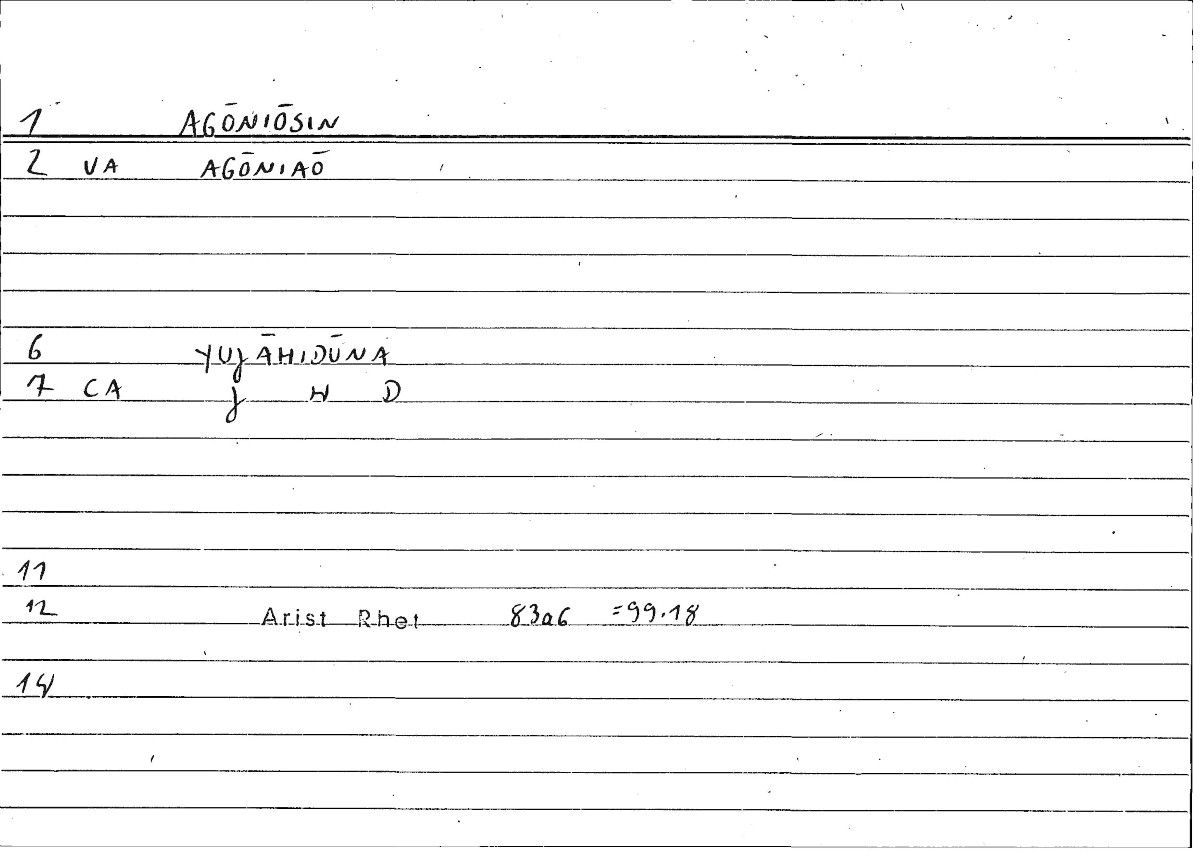 1 AGŌNIŌSIN
2 VA AGŌNIAŌ
6 YUJ̌ĀHIDŪNA
7 CA J̌ H D
11
12 Arist Rhet 83a6 =99.18
14